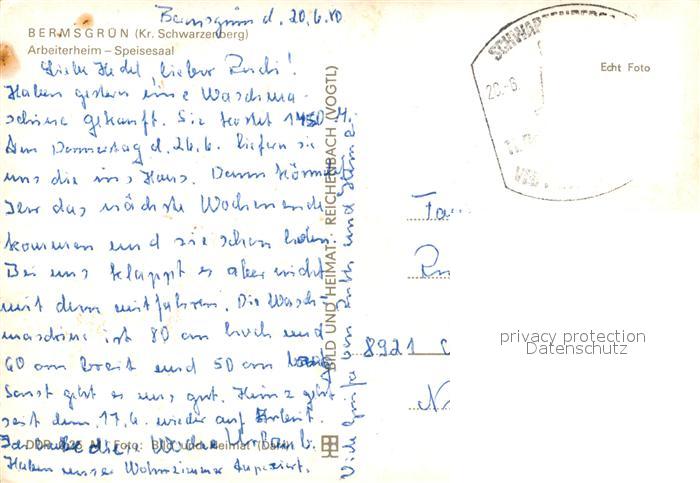 Bermsgrün d. 20.6.80
BERMSGRÜN (Kr. Schwarzenberg)
Arbeiterheim – Speisesaal
Liebe Hedel, lieber Rudi!
Haben gestern eine Waschma-
schine gekauft. Sie kostet 1450 M.
Am Donnerstag d. 26.6. liefern sie
uns die ins Haus. Dann könntet
Ihr das nächste Wochenende
kommen und sie schon holen.
Bei uns klappt es aber nicht
mit dem mitfahren. Die Wasch-
maschine ist 80 cm hoch und
60 cm breit und 50 cm
Sonst geht es uns gut. Heinz geht
seit dem 17.6. wieder auf Arbeit.
Ich habe diese Woche Urlaub.
DDR Foto: Bild und Heimat
Haben unser Wohnzimmer tapeziert.
Viele Grüße von Ruth und Heinz
BILD UND HEIMAT REICHENBACH (VOGTL)
SCHWARZENBERG
20.-6.
Echt Foto
8921
privacy protection
Datenschutz